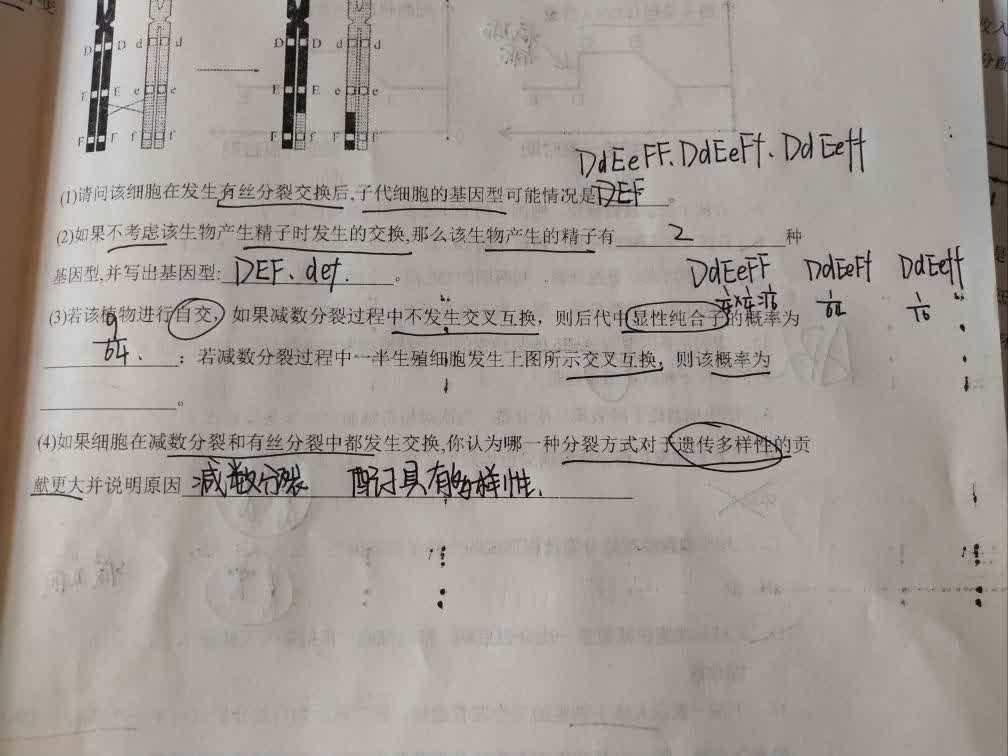 D D d d D D d d
E E e e E E e e
F F f f F f F f
DdEeFF、DdEeFf、DdEeff
(1)请问该细胞在发生有丝分裂交换后,子代细胞的基因型可能情况是DEF。
(2)如果不考虑该生物产生精子时发生的交换,那么该生物产生的精子有 2 种
基因型,并写出基因型: DEF、def. 。
DdEeFF DdEeFf DdEeff
1/4×1/4=1/16 1/64 1/16
(3)若该植物进行自交,如果减数分裂过程中不发生交叉互换,则后代中显性纯合子的概率为
9/64. ;若减数分裂过程中一半生殖细胞发生上图所示交叉互换,则该概率为
。
(4)如果细胞在减数分裂和有丝分裂中都发生交换,你认为哪一种分裂方式对于遗传多样性的贡
献更大并说明原因 减数分裂 配子具有多样性.